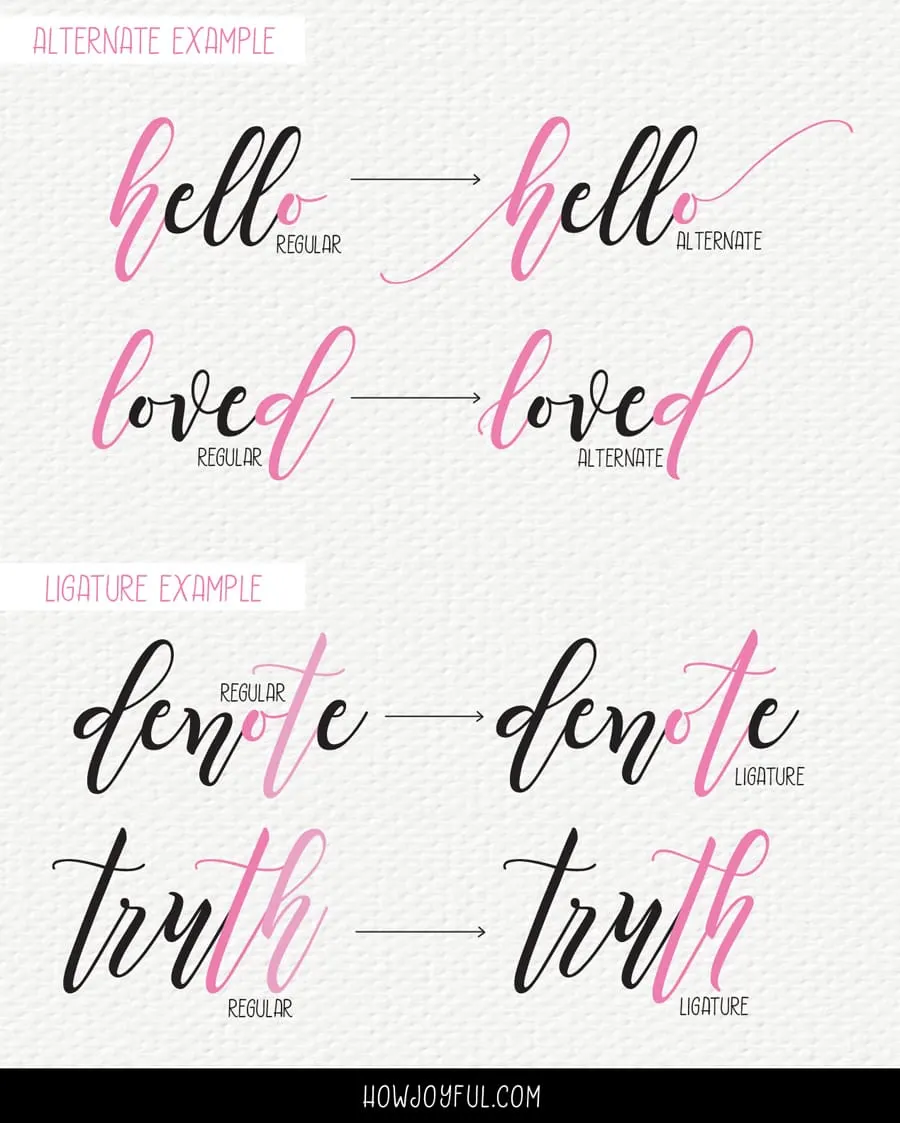 ALTERNATE EXAMPLE
hello hello
REGULAR ALTERNATE
loved loved
REGULAR ALTERNATE
LIGATURE EXAMPLE
denote denote
REGULAR LIGATURE
truth truth
REGULAR LIGATURE
HOWJOYFUL.COM